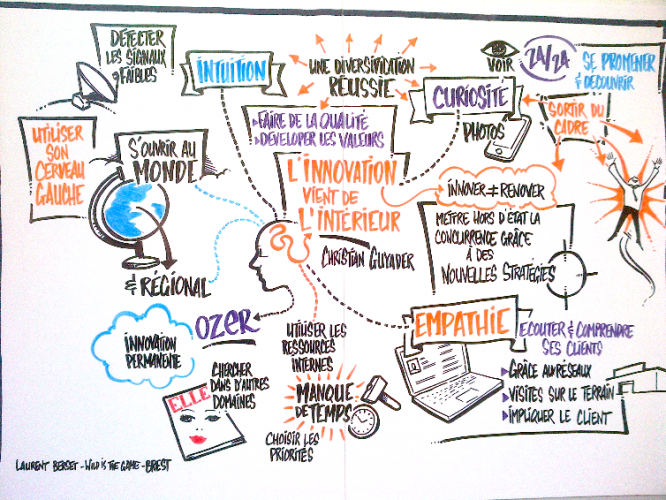 DÉTECTER
LES SIGNAUX
FAIBLES
INTUITION
UNE DIVERSIFICATION
RÉUSSIE
VOIR
2A/2A
SE PROMENER
& DECOUVRIR
CURIOSITÉ
PHOTOS
SORTIR DU
CADRE
UTILISER
SON
CERVEAU
GAUCHE
S'OUVRIR AU
MONDE
& RÉGIONAL
FAIRE DE LA QUALITÉ
DEVELOPER LES VALEURS
L'INNOVATION
VIENT DE
L'INTÉRIEUR
CHRISTIAN GUYADER
INNOVER ≠ RENOVER
METTRE HORS D'ÉTAT LA
CONCURRENCE GRÂCE
À DES
NOUVELLES STRATÉGIES
INNOVATION
PERMANENTE
OZER
CHERCHER
DANS D'AUTRES
DOMAINES
ELLE
UTILISER LES
RESSOURCES
INTERNES
MANQUE
DE TEMPS
CHOISIR LES
PRIORITÉS
EMPATHIE
ECOUTER & COMPRENDRE
SES CLIENTS
GRÂCE AUX RÉSEAUX
VISITES SUR LE TERRAIN
IMPLIQUER LE CLIENT
LAURENT BERSET - WILD IS THE GAME - BREST